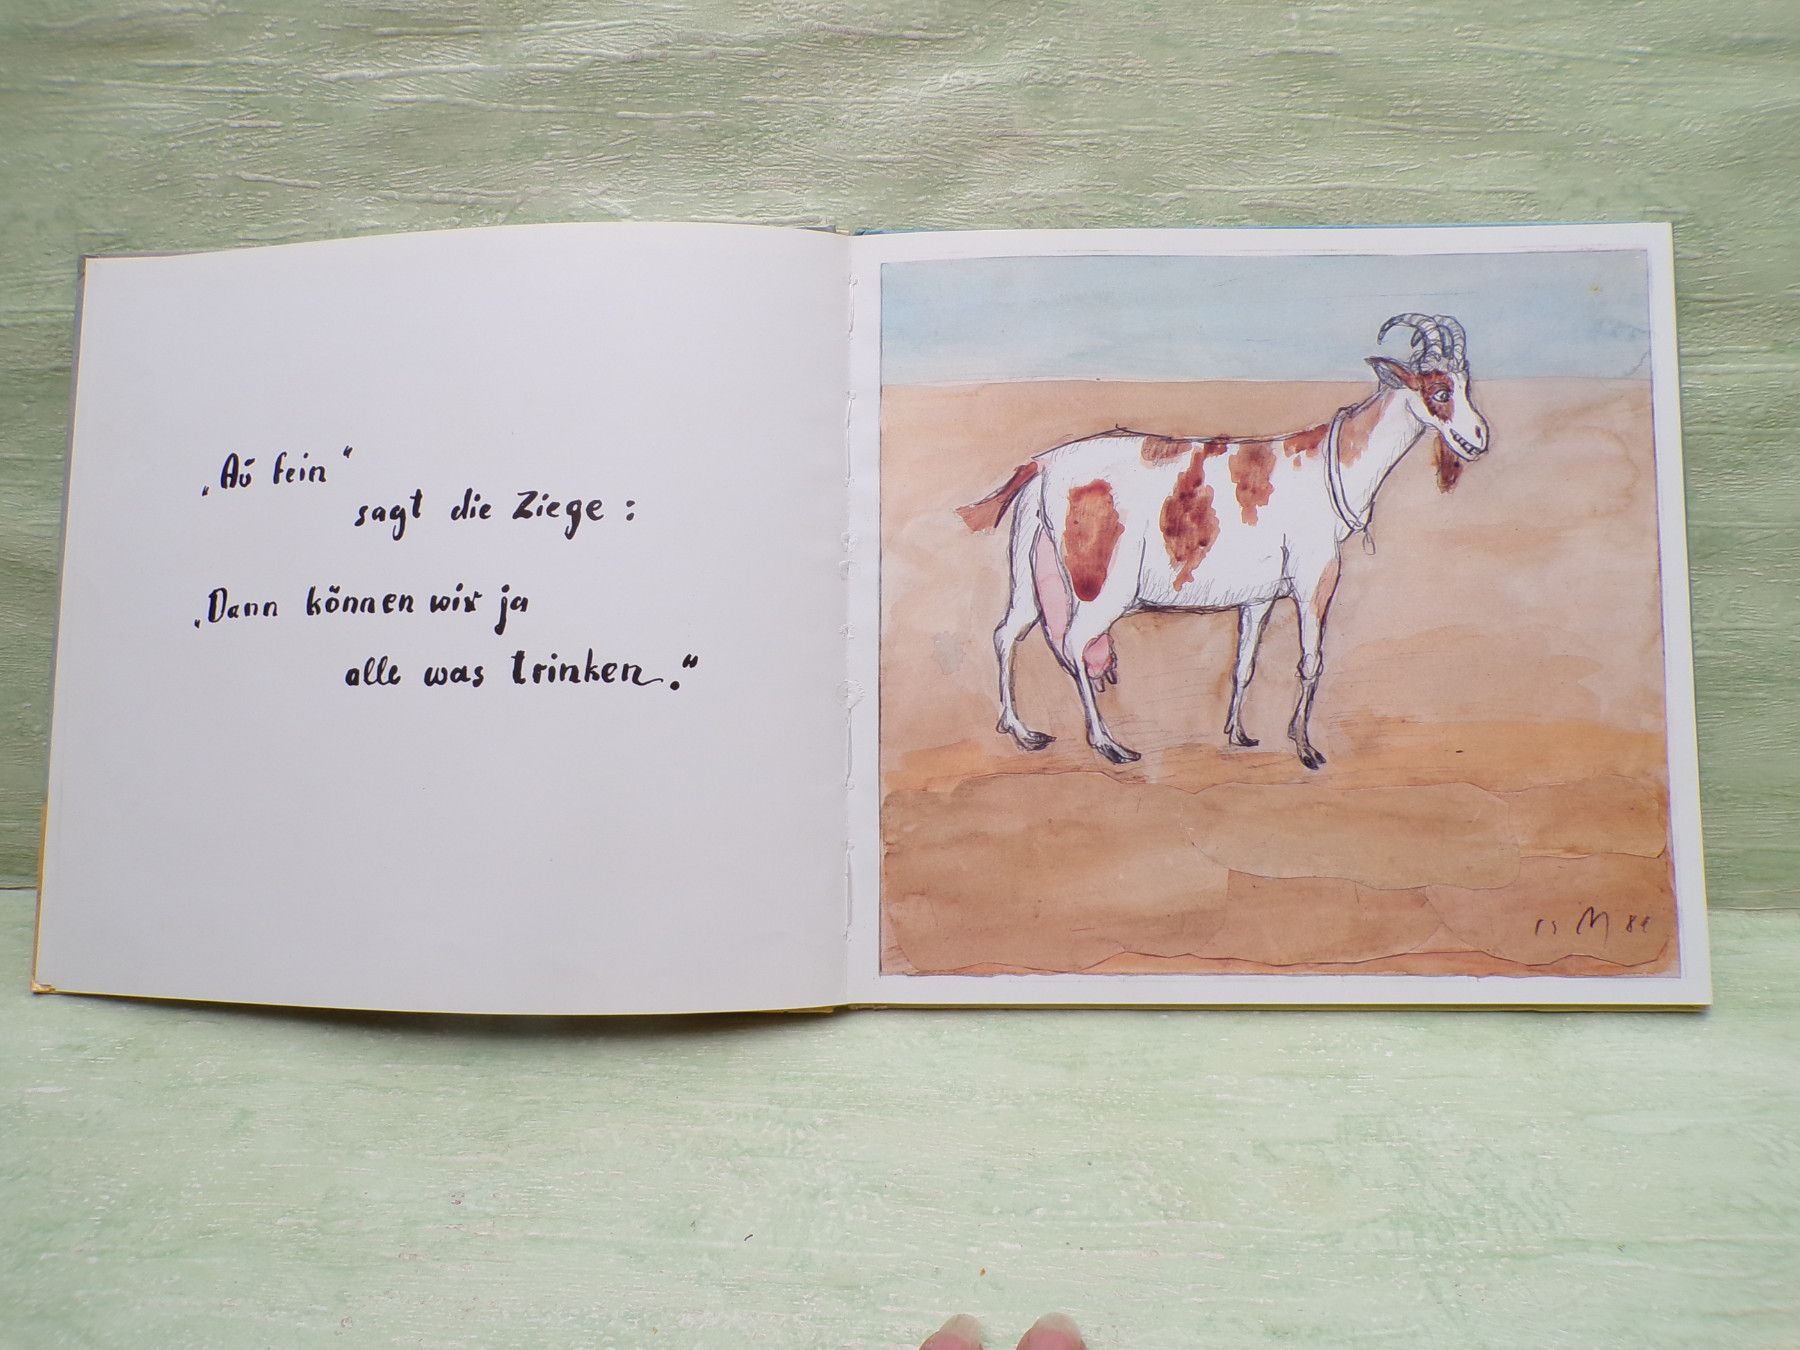 „Aŭ fein“
sagt die Ziege:
„Dann können wir ja
alle was trinken.“